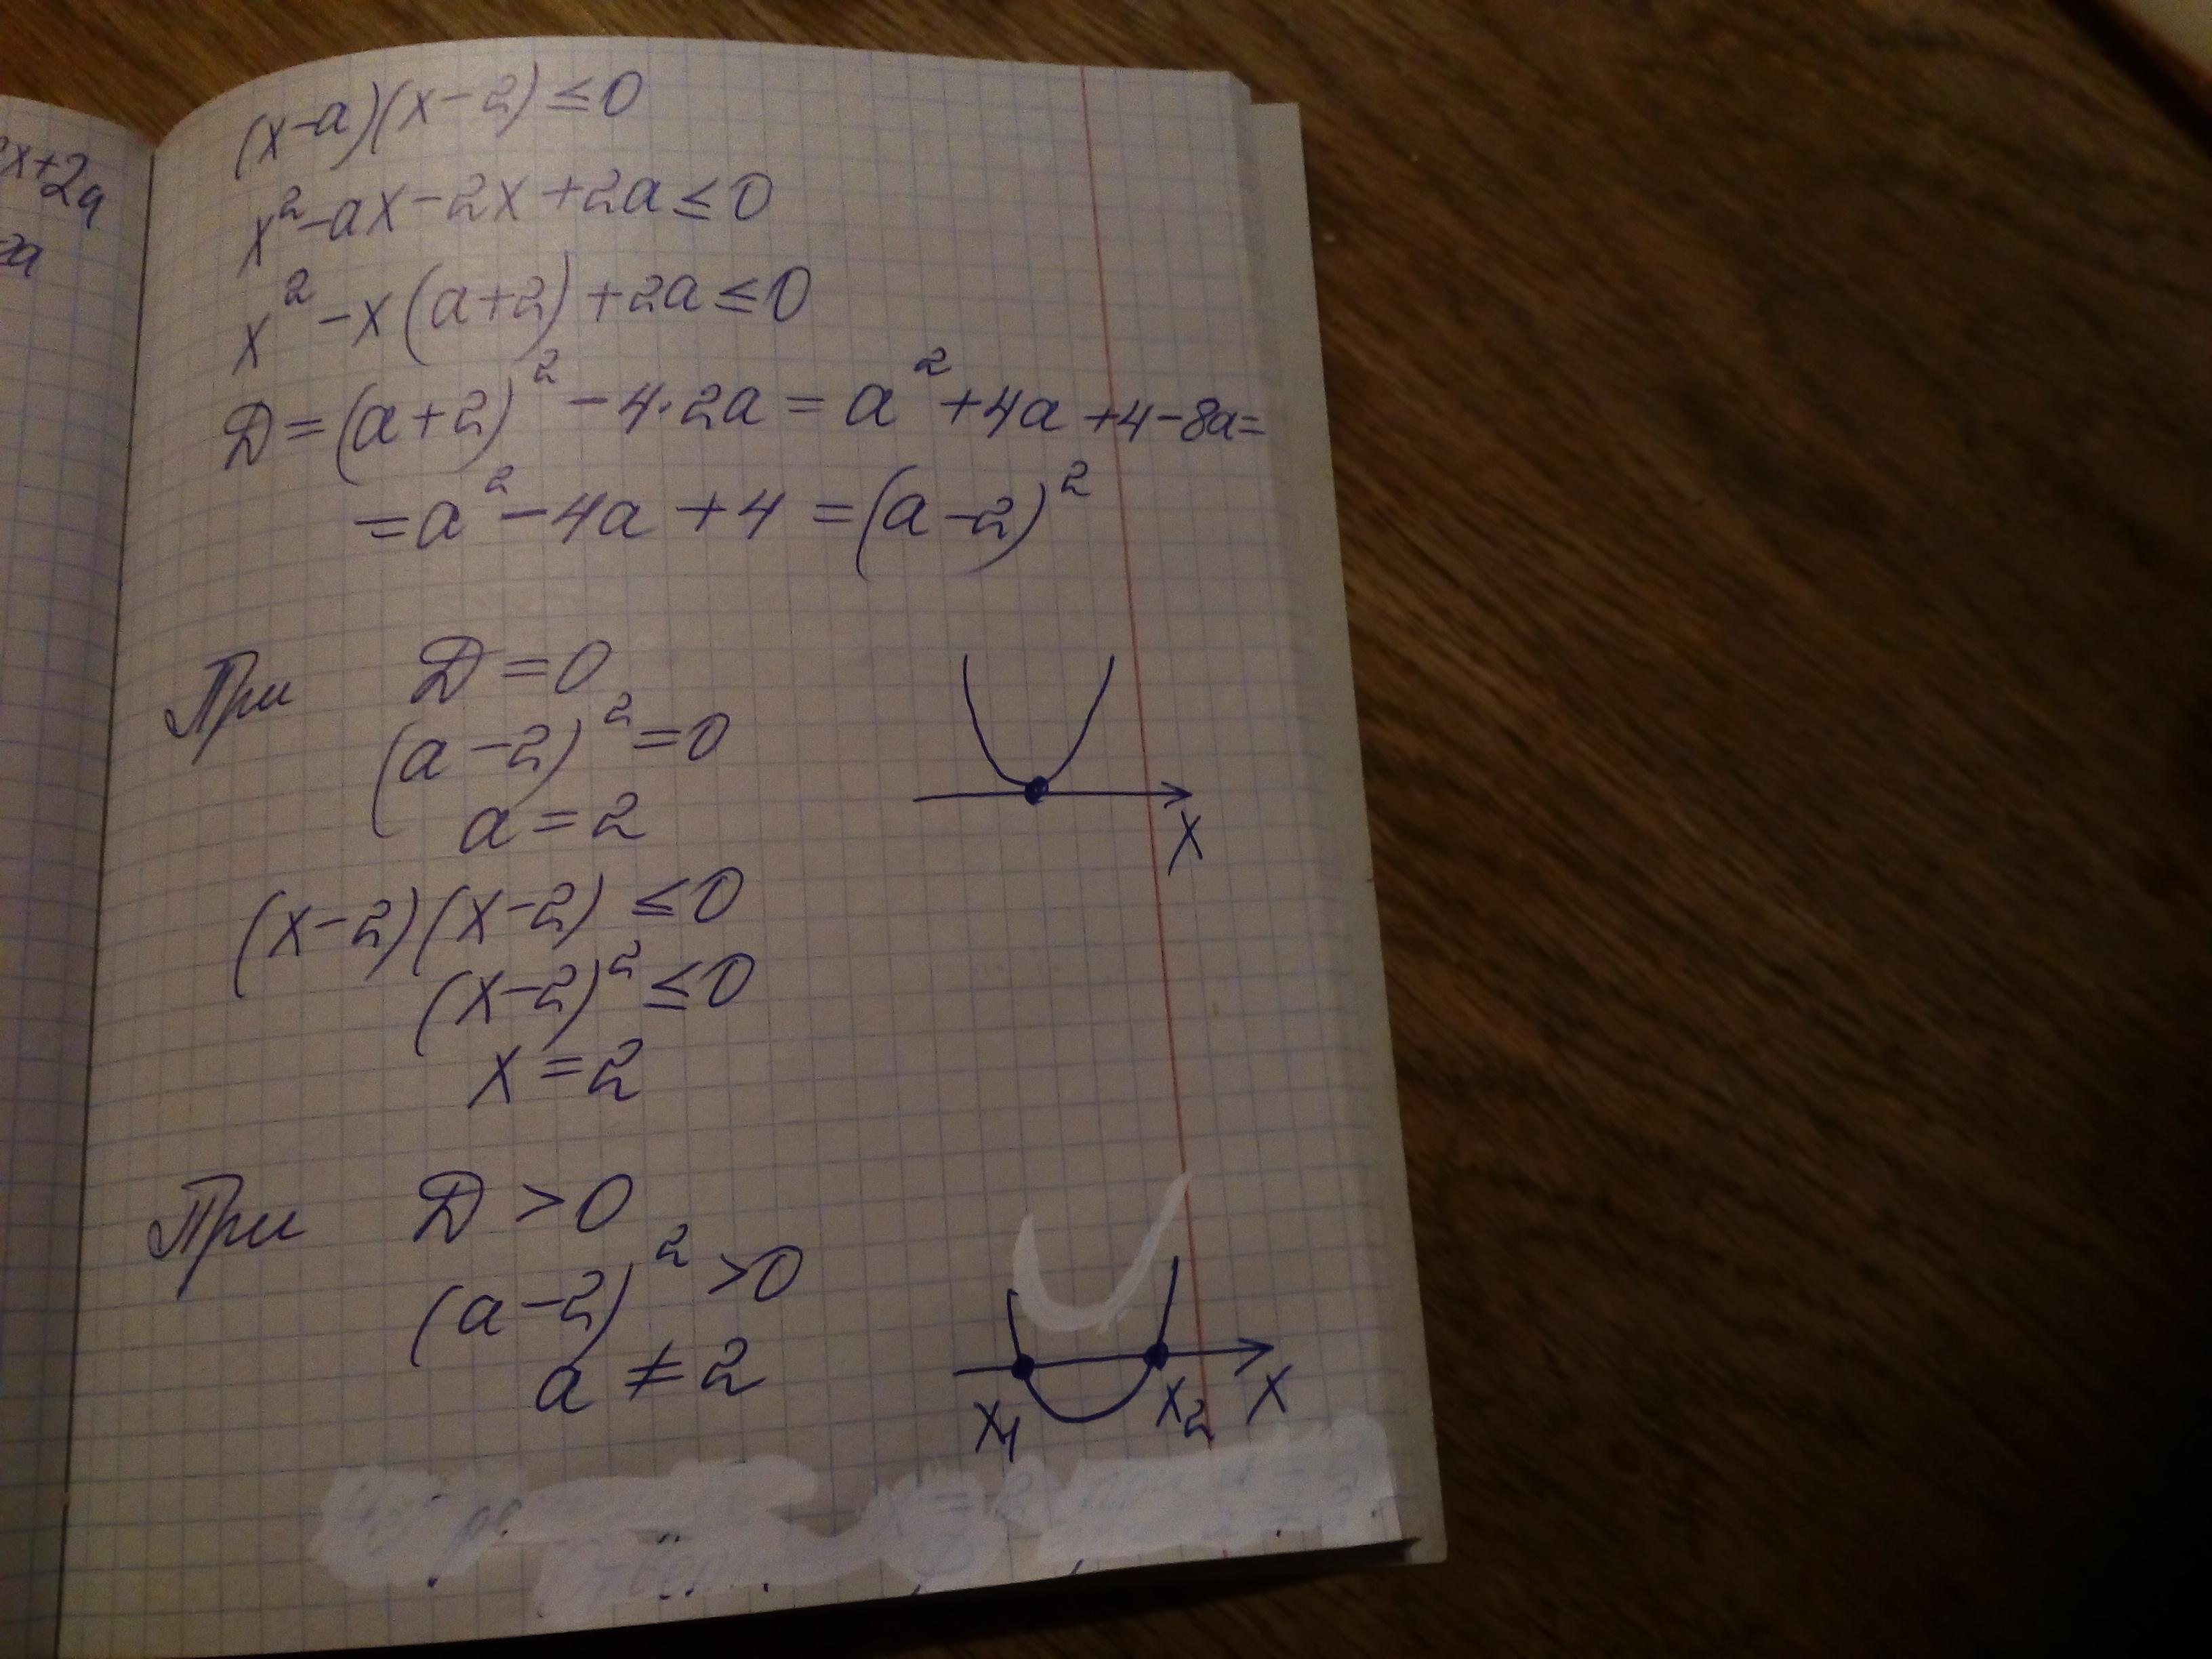 x+2a
2a
(x-a)(x-2)≤0
x²-ax-2x+2a≤0
x²-x(a+2)+2a≤0
D=(a+2)²-4·2a=a²+4a+4-8a=
=a²-4a+4=(a-2)²
При D=0
(a-2)²=0
a=2
x
(x-2)(x-2)≤0
(x-2)²≤0
x=2
При D>0
(a-2)²>0
a≠2
x₁ x₂ x